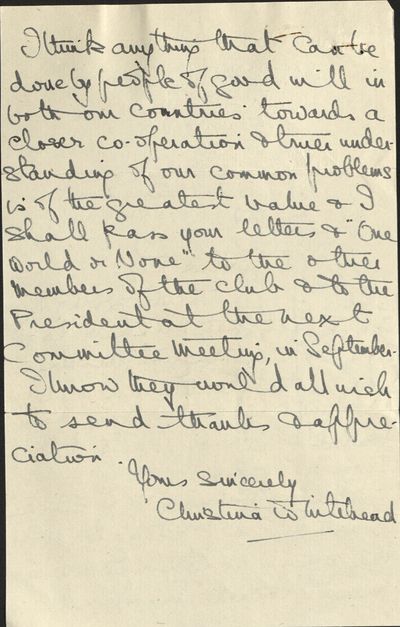 I think anything that can be
done by people of good will in
both our countries towards a
closer co-operation & truer under-
standing of our common problems
is of the greatest value & I
shall pass your letters & "One
World or None" to the other
members of the club & to the
President at the next
Committee Meeting, in September.
I know they would all wish
to send thanks & appre-
ciation.
Yours sincerely
Christina Whitehead